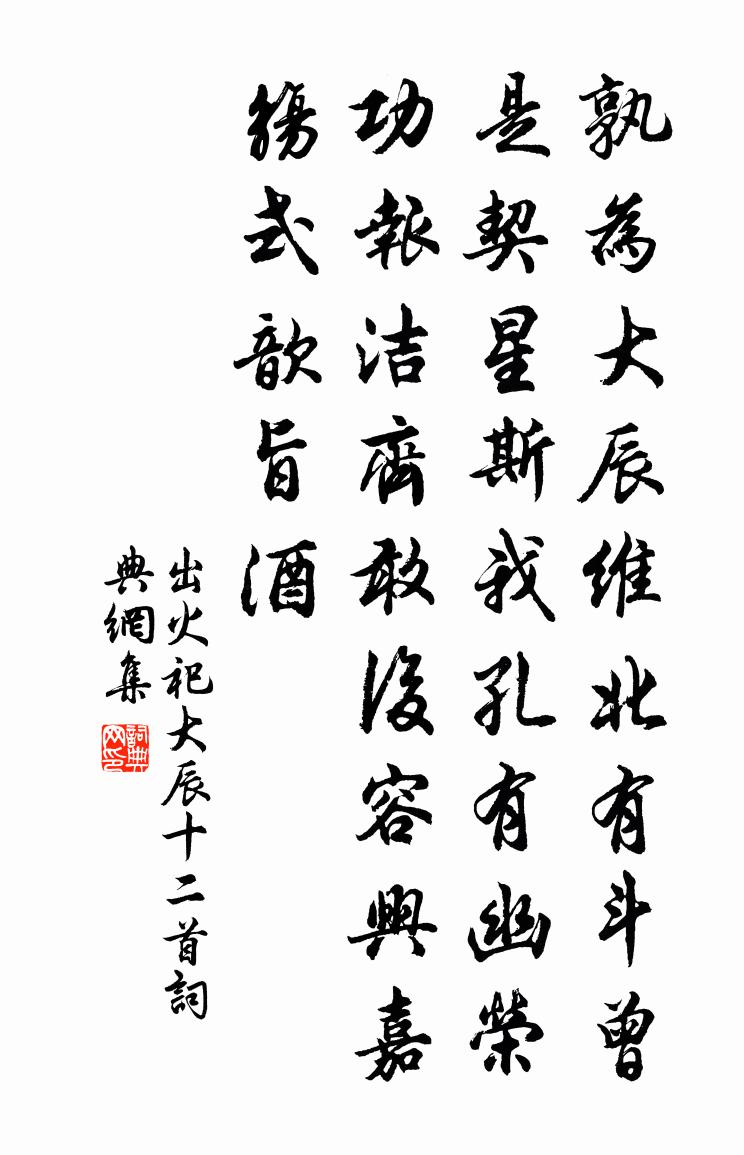 孰為大辰維北有斗曾
是契星斯我孔有幽榮
功報洁齊敢後容興嘉
觴式歆旨酒
出火祀大辰十二首詞
典網集
詞典
网印